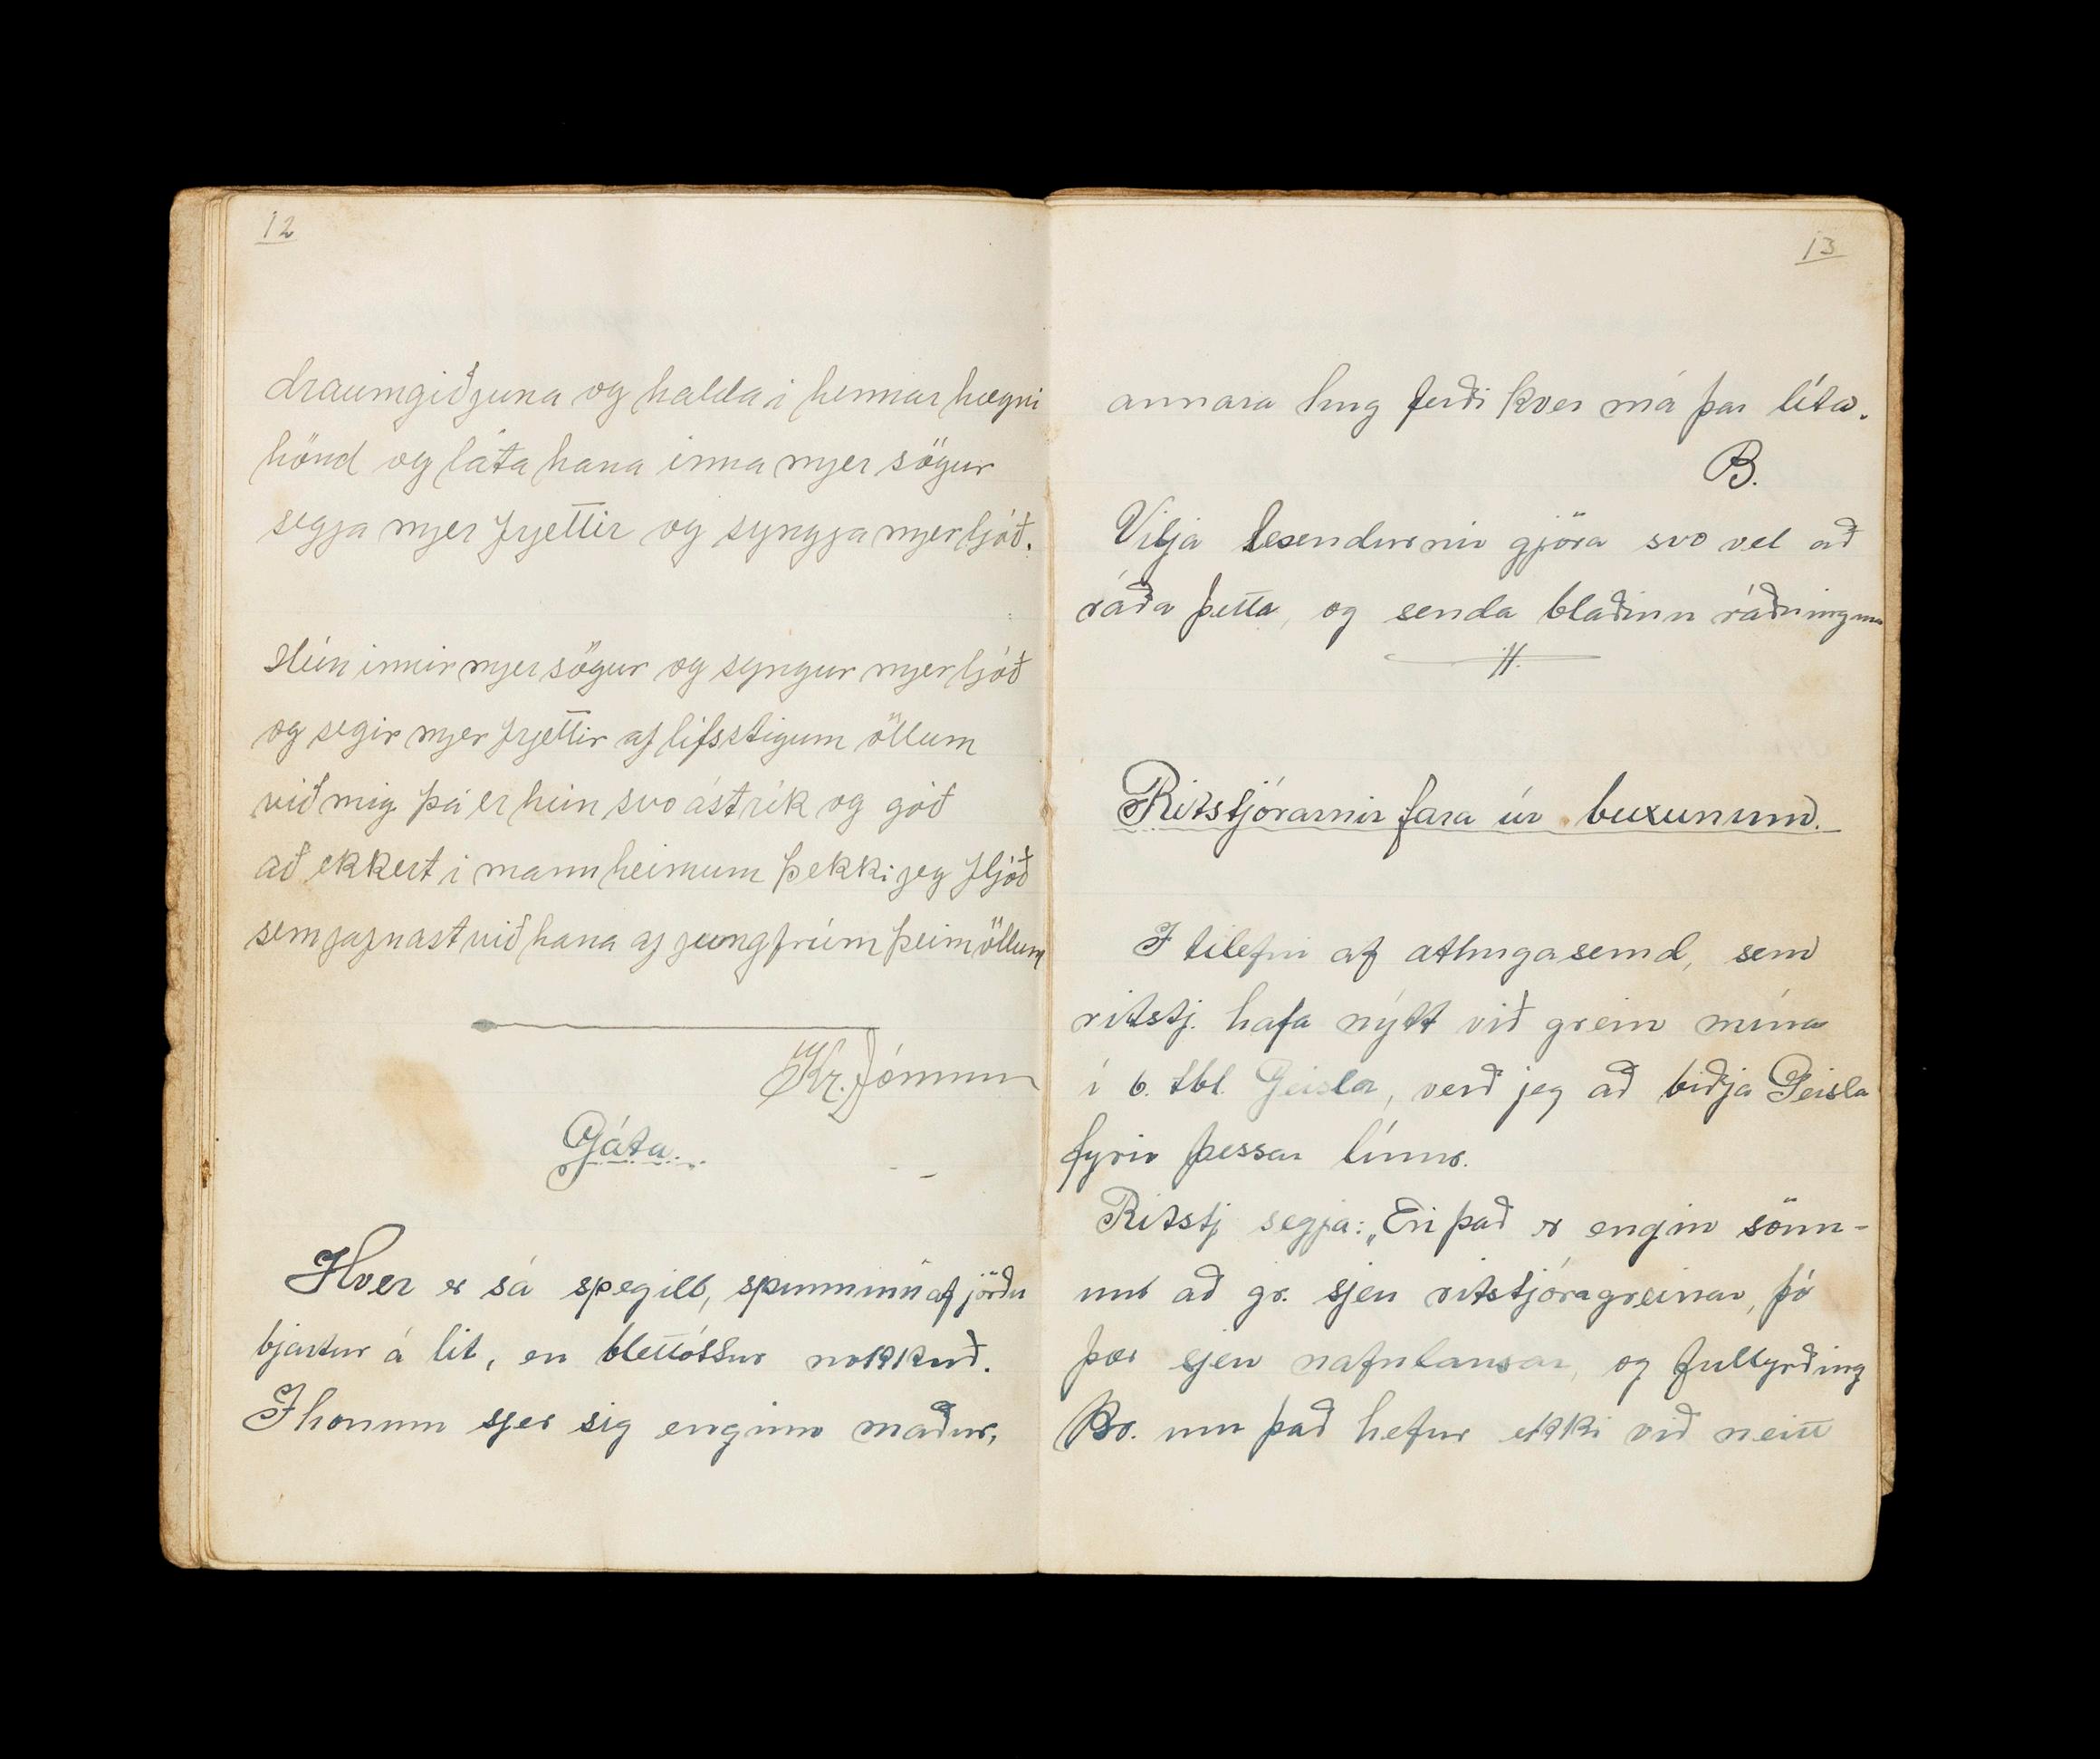 12
draumgiðjuna og halda i hennar hægri
hönd og láta hana inna mjer sögur
segja mjer frjettir og syngja mjer ljóð.
Hún innir mjer sögur og syngur mjer ljóð
og segir mjer frjettir af lifsstigum öllum
við mig þá er hún svo ástrik og góð
að ekkert i mannheimum þekki jeg fljóð
sem jafnast við hana af jungfrúm þeim öllum
Kr. Jónsson
Gáta.
Hver er sá spegill, spunninn af jörðu
bjartur á lit, en blettóttur nokkuð.
I honum sjer sig enginn maður,
13
annara hug ferði hver má þar líta.
B.
Vilja lesendurnir gjöra svo vel að
ráða þetta, og senda blaðinu ráðninguna
Ritstjórarnir fara úr buxunum.
I tilefni af athugasemd, sem
ritstj. hafa nýtt við grein mína
í 6. tbl. Geisla, verð jeg að biðja Geisla
fyrir þessar línur.
Ritstj segja: „En það er engin sönn-
un að gr. sjeu ritstjóragreinar, þó
þær sjeu nafnlausar, og fullyrðing
Br. um það hefur ekki við neitt